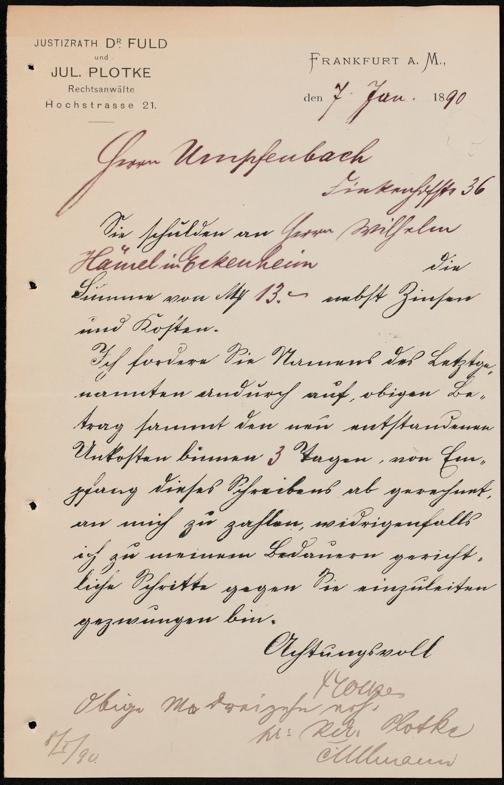 JUSTIZRATH Dr. FULD
und
JUL. PLOTKE
Rechtsanwälte
Hochstrasse 21.
FRANKFURT A. M.,
den 7. Jan. 1890
Herrn Umpfenbach
36
Sie schulden an Herrn Wilhelm
Hämel in Eckenheim die
Summe von M 13.- nebst Zinsen
und Kosten.
Ich fordere Sie Namens des Letztge-
nannten andurch auf, obigen Be-
trag sammt den neu entstandenen
Unkosten binnen 3 Tagen, von Em-
pfang dieses Schreibens ab gerechnet,
an mich zu zahlen, widrigenfalls
ich zu meinem Bedauern gericht-
liche Schritte gegen Sie einzuleiten
gezwungen bin.
Achtungsvoll
Plotke
Obige M dreizehn
Plotke
Ullmann
8/I/90